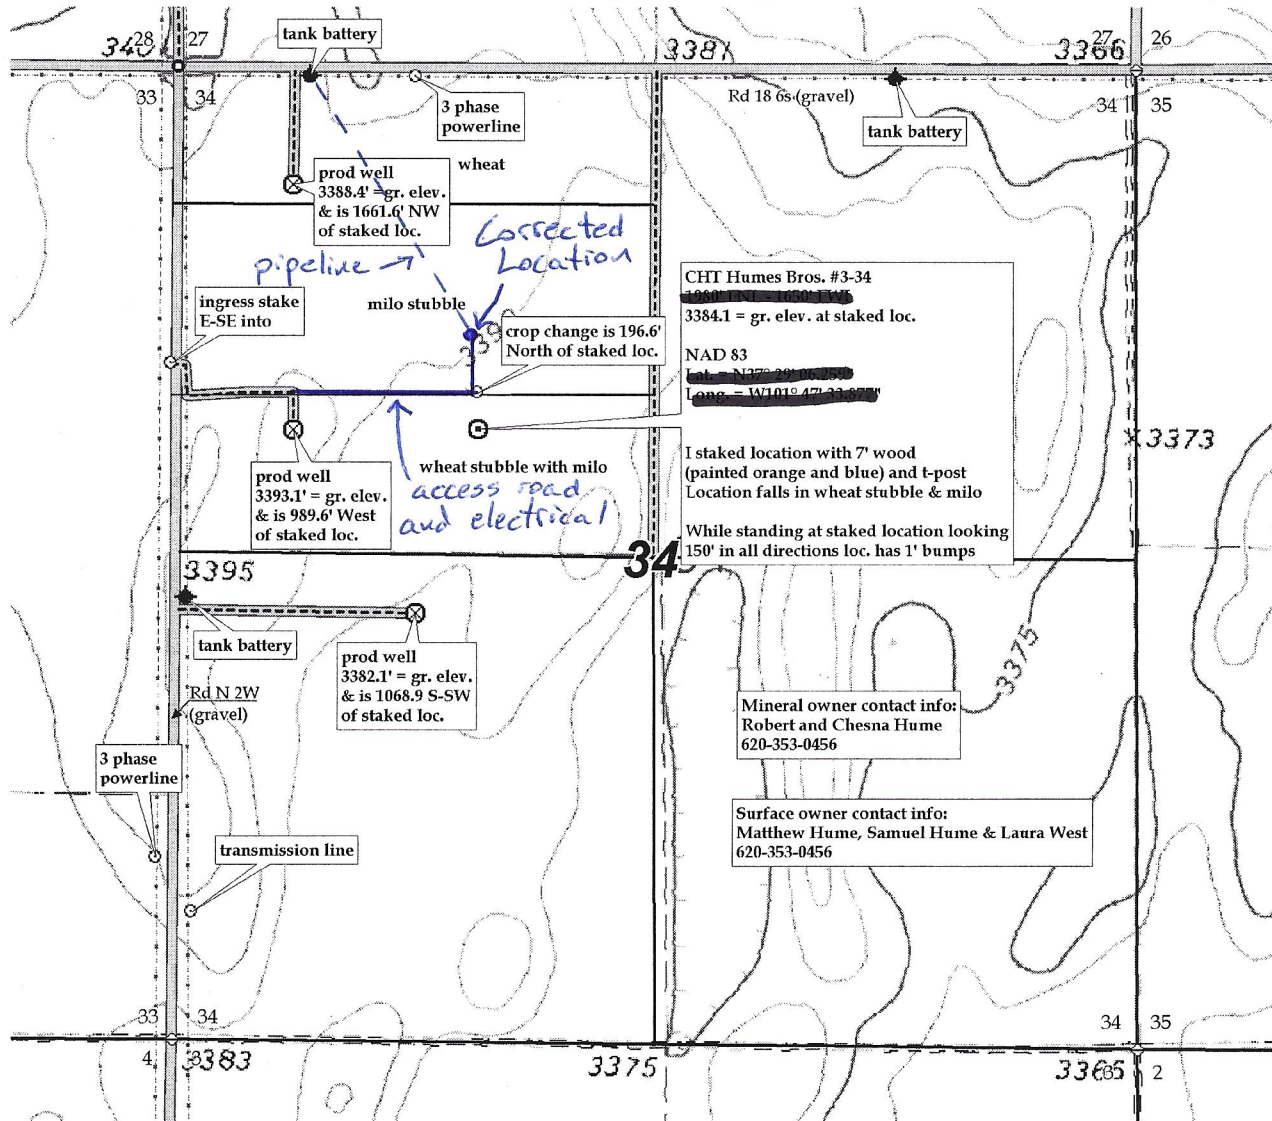 28 27
340
tank battery
3381
27 26
3366
33 34
3 phase
powerline
Rd 18 6s (gravel)
34 35
tank battery
wheat
prod well
3388.4' = gr. elev.
& is 1661.6' NW
of staked loc.
Corrected
Location
pipeline
ingress stake
E-SE into
milo stubble
339
crop change is 196.6'
North of staked loc.
CHT Humes Bros. #3-34
1980' FNL - 1650' FWL
3384.1 = gr. elev. at staked loc.
NAD 83
Lat. = N37° 29' 06.259"
Long. = W101° 47' 33.877"
3373
I staked location with 7' wood
(painted orange and blue) and t-post
Location falls in wheat stubble & milo
While standing at staked location looking
150' in all directions loc. has 1' bumps
prod well
3393.1' = gr. elev.
& is 989.6' West
of staked loc.
wheat stubble with milo
access road
and electrical
34
3395
tank battery
prod well
3382.1' = gr. elev.
& is 1068.9 S-SW
of staked loc.
3375
Rd N 2W
(gravel)
Mineral owner contact info:
Robert and Chesna Hume
620-353-0456
3 phase
powerline
Surface owner contact info:
Matthew Hume, Samuel Hume & Laura West
620-353-0456
transmission line
33 34
34 35
4
3383
3375
3365
2